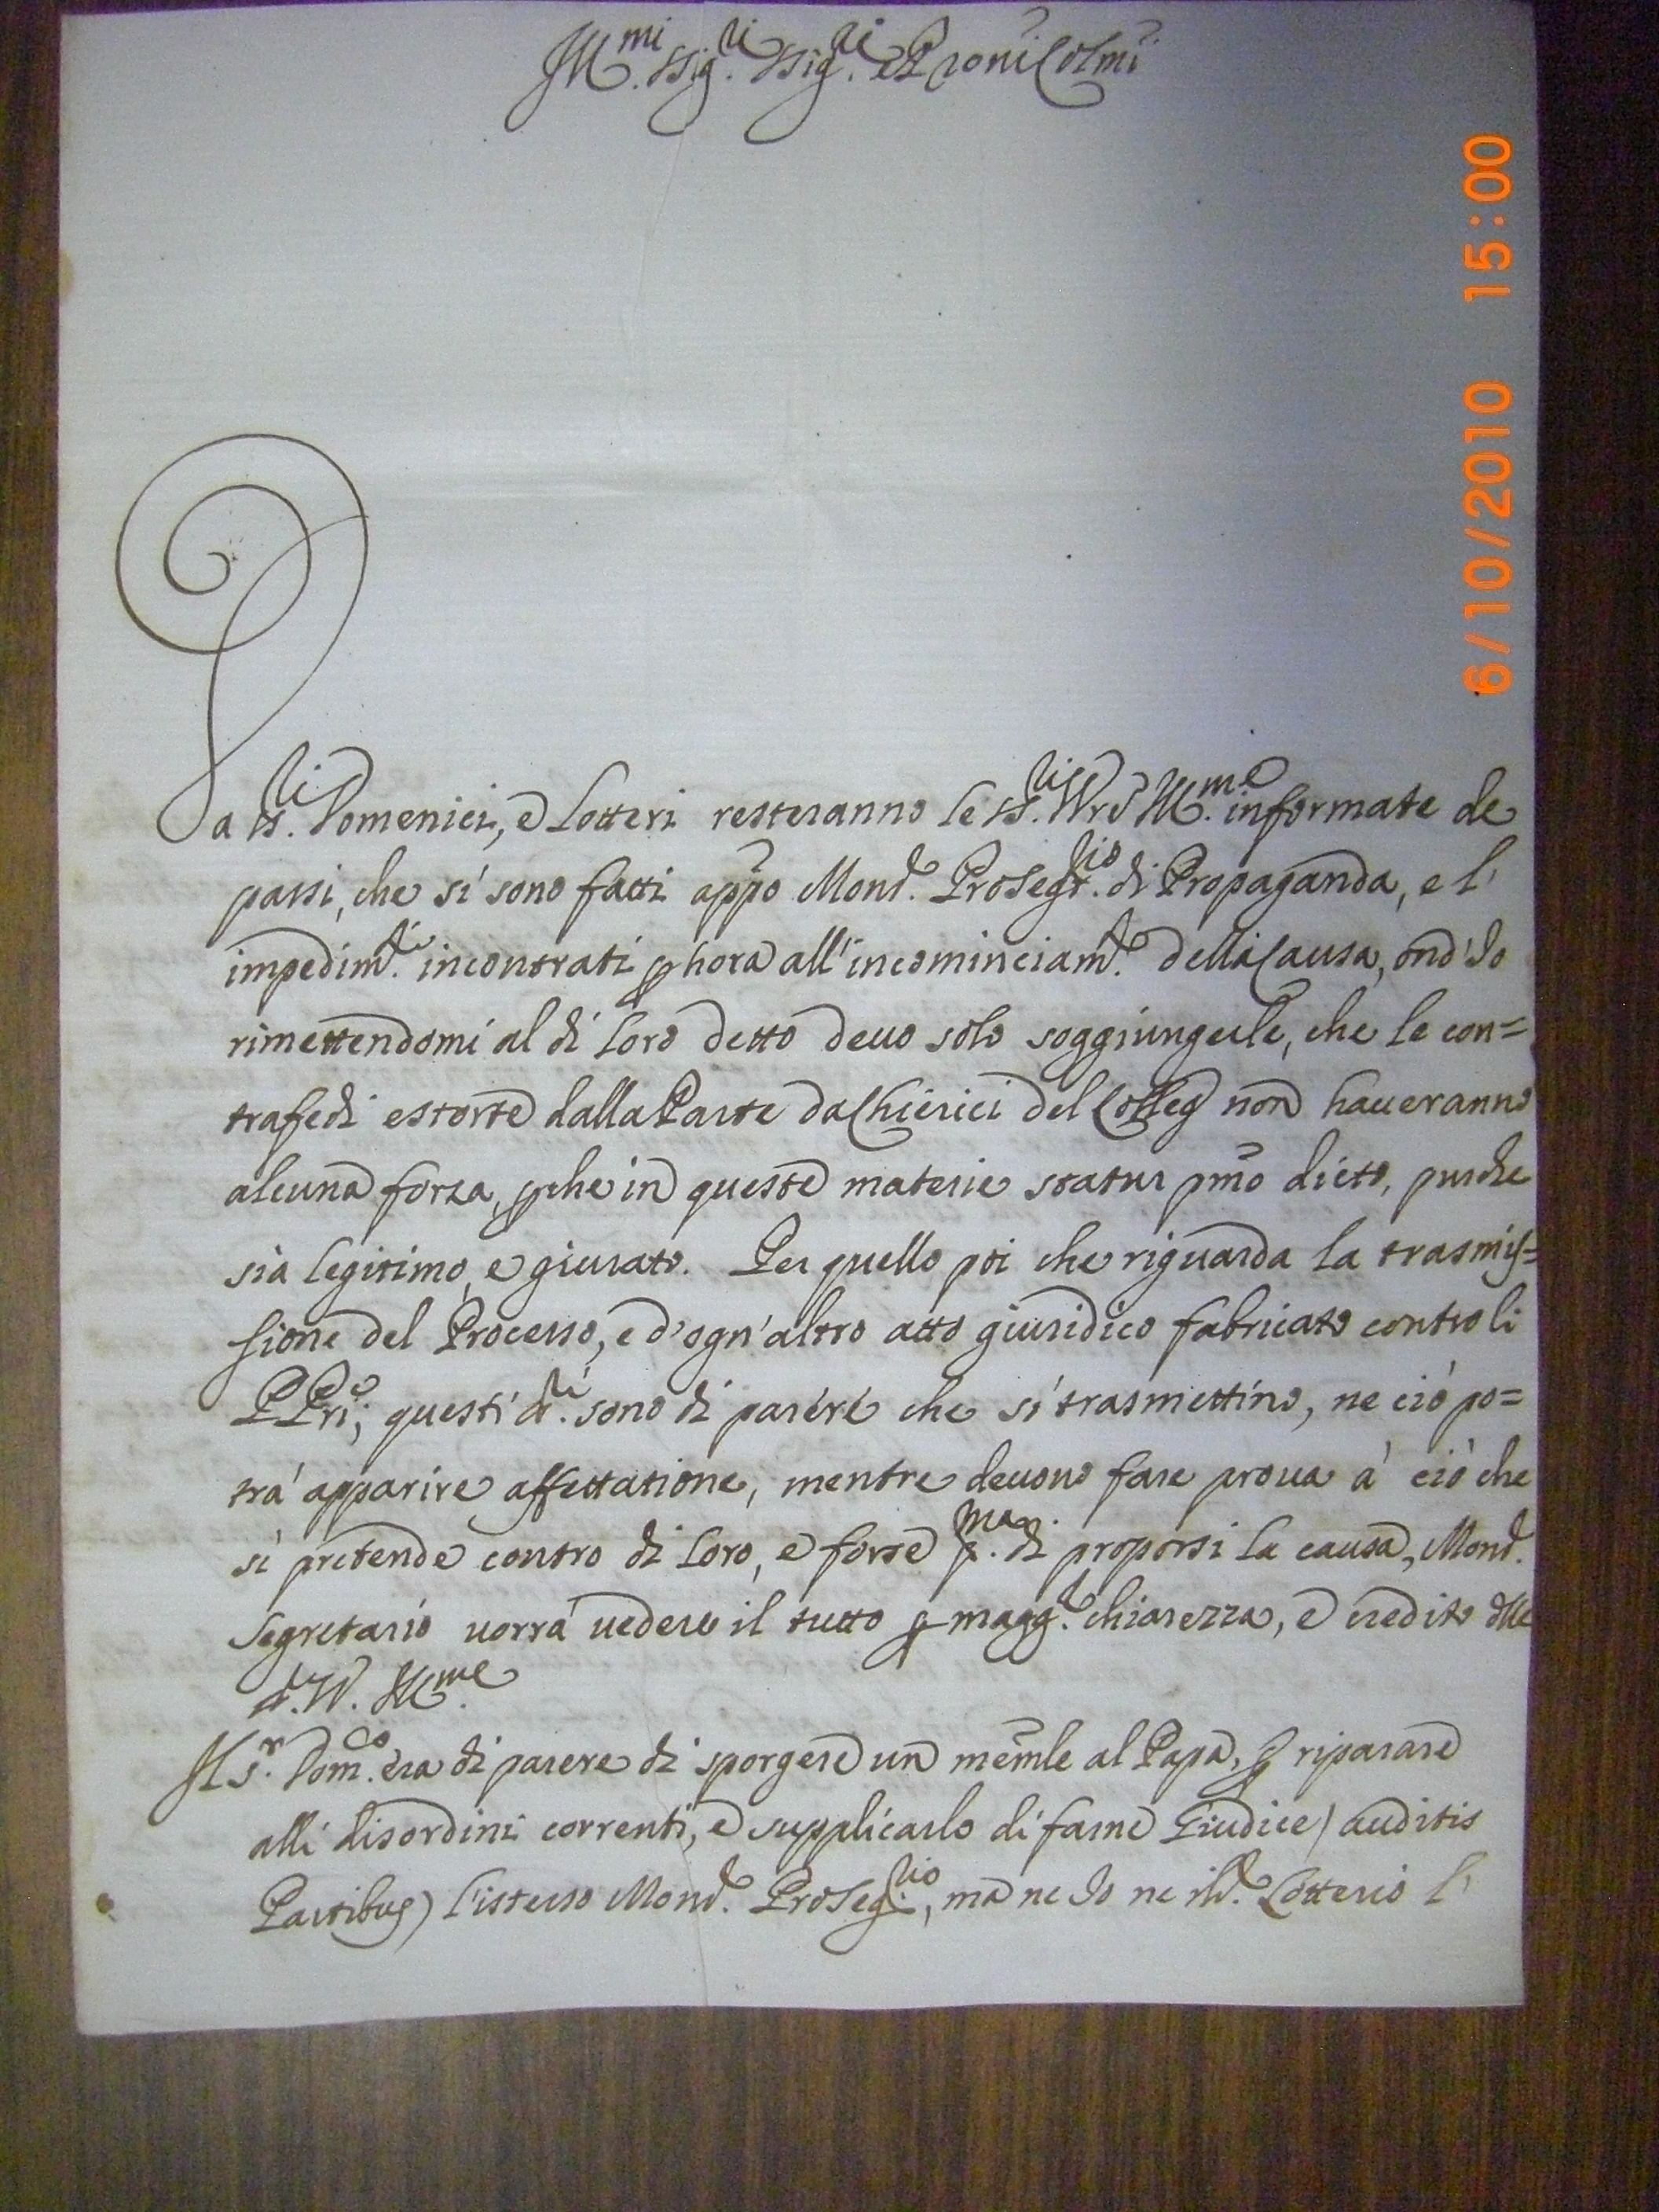 Ill.mi Sig.ri Sig.ri e Pron̄i Colmi
Da ss.ri Domenici, e Lotteri resteranno le ss.rie Vr̄e Ill.me informate de
passi, che si sono fatti app̄o Mons.r Prosegr.rio di Propaganda, e l'
impedim.ti incontrati p hora all'incominciam.to della Causa, ond'Io
rimettendomi al di loro detto deuo solo soggiungerle, che le con=
trafedi estorte dalla Parte da Chierici del Colleg non haueranno
alcuna forza, pche in queste materie statur pm̄o dicto, purche
sia legitimo, e giurato. Per quello poi che riguarda la trasmis=
sione del Processo, e d'ogn'altro atto giuridico fabricato contro li
PPri; questi ss.ri sono di parere che si trasmettino, ne ciò po=
trà apparire affettatione, mentre deuono fare proua à ciò che
si pretende contro di loro, e forse p.ma di proporsi la causa, Mons.r
Segretario uorrà uedere il tutto p magg.r chiarezza, e credito dlle
VV. Ill.me
Il s.r Dom.co era di parere di sporgere un mem̄le al Papa, p riparare
alli disordini correnti, e supplicarlo di farne Giudice (auditis
Partibus) l'istesso Mons.r Proseg.rio, ma ne Io ne il s.r Lotterio l'
6/10/2010 15:00